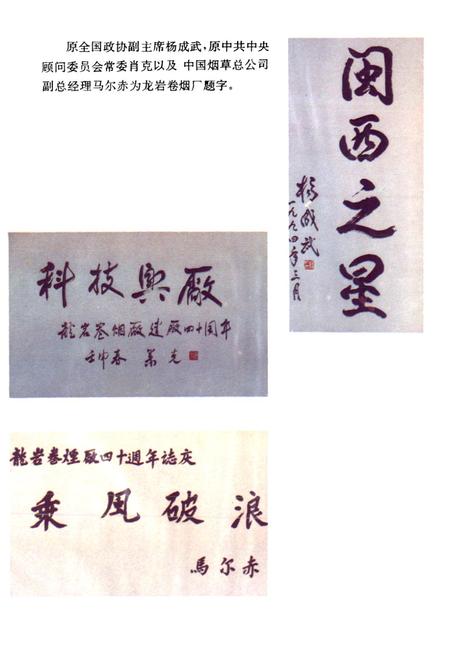 原全国政协副主席杨成武,原中共中央
顾问委员会常委肖克以及 中国烟草总公司
副总经理马尔赤为龙岩卷烟厂题字。
闽西之星
杨成武
一九九四年三月
科技興廠
龍岩卷烟廠建廠四十周年
壬申春 萧克
龍岩卷煙廠四十週年誌庆
乘風破浪
馬尔赤